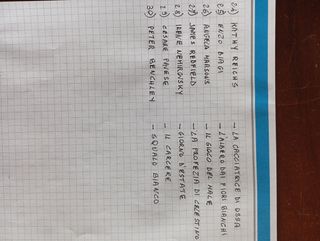 24) KATHY REICHS - LA CACCIATRICE DI OSSA
25) ENZO BIAGI - L'ALBERO DAI FIORI BIANCHI
26) ANGELA MARSONS - IL GIOCO DEL MALE
27) JAMES REDFIELD - LA PROFEZIA DI CELESTINO
28) IRENE NEMIROVSKY - GIORNO D'ESTATE
29) CESARE PAVESE - IL CARCERE
30) PETER BENCHLEY - SQUALO BIANCO